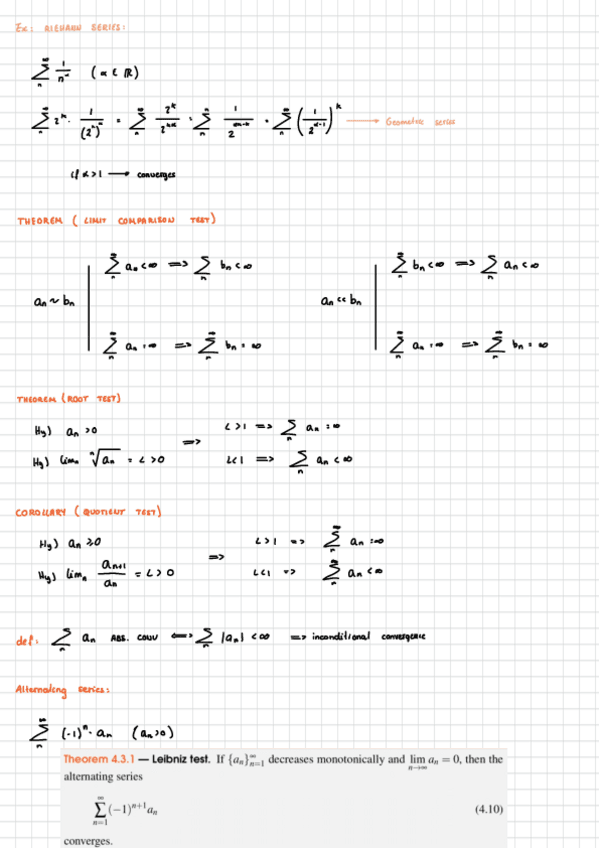 Ex: RIEMANN SERIES:
∞∑n 1/n^α (α ∈ ℝ)
∞∑n 2^k · 1/(2^k)^α = ∞∑n 2^k/2^kα = ∞∑n 1/2^αk-k = ∞∑n (1/2^α-1)^k → Geometric series
if α>1 → converges
THEOREM ( LIMIT COMPARISON TEST)
∞∑n an <∞ => ∑n bn <∞ ∞∑n bn <∞ => ∑n an <∞
an ~ bn an << bn
∞∑n an =∞ => ∞∑n bn = ∞ ∞∑n an =∞ => ∞∑n bn = ∞
THEOREM (ROOT TEST)
Hy) an >0 => L>1 => ∑n an =∞
Hy) limn ⁿ√an = L >0 L<1 => ∑n an <∞
COROLLARY ( QUOTIENT TEST)
Hy) an ≥0 => L>1 => ∞∑n an =∞
Hy) limn an+1/an = L >0 L<1 => ∞∑n an <∞
def: ∑n an ABS. CONV <=> ∑n |an| <∞ => inconditional convergence
Alternating series:
∞∑n (-1)^n · an (an>0)
Theorem 4.3.1 — Leibniz test. If {an}∞n=1 decreases monotonically and lim n→∞ an = 0, then the
alternating series
∞∑n=1 (−1)^n+1 an (4.10)
converges.